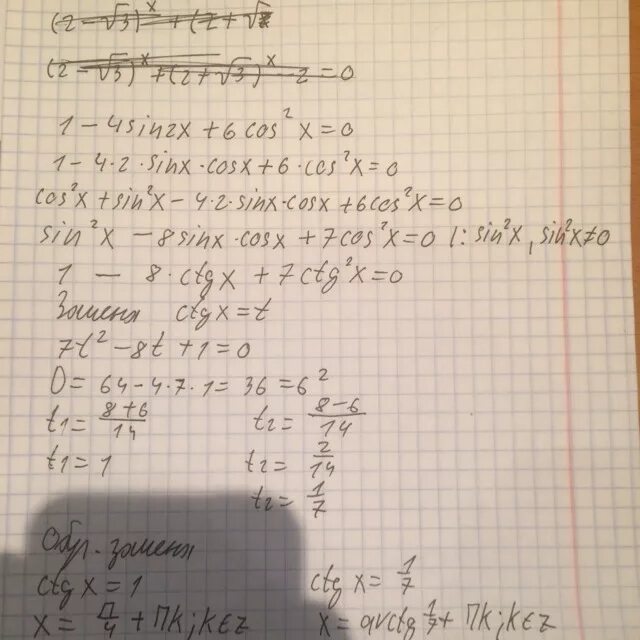 (2 - √3)^x + (2 + √2
(2 - √3)^x + (2 + √3)^x - 2 = 0
1 - 4 sin2x + 6 cos²x = 0
1 - 4·2·sinx·cosx + 6·cos²x = 0
cos²x + sin²x - 4·2·sinx·cosx + 6cos²x = 0
sin²x - 8sinx·cosx + 7cos²x = 0 |: sin²x, sin²x ≠ 0
1 - 8·ctgx + 7ctg²x = 0
Замена ctgx = t
7t² - 8t + 1 = 0
D = 64 - 4·7·1 = 36 = 6²
t1 = (8+6)/14 t2 = (8-6)/14
t1 = 1 t2 = 2/14
t2 = 1/7
Обр. замена
ctgx = 1 ctgx = 1/7
x = П/4 + Пk; k∈z x = arctg 1/7 + Пk; k∈z